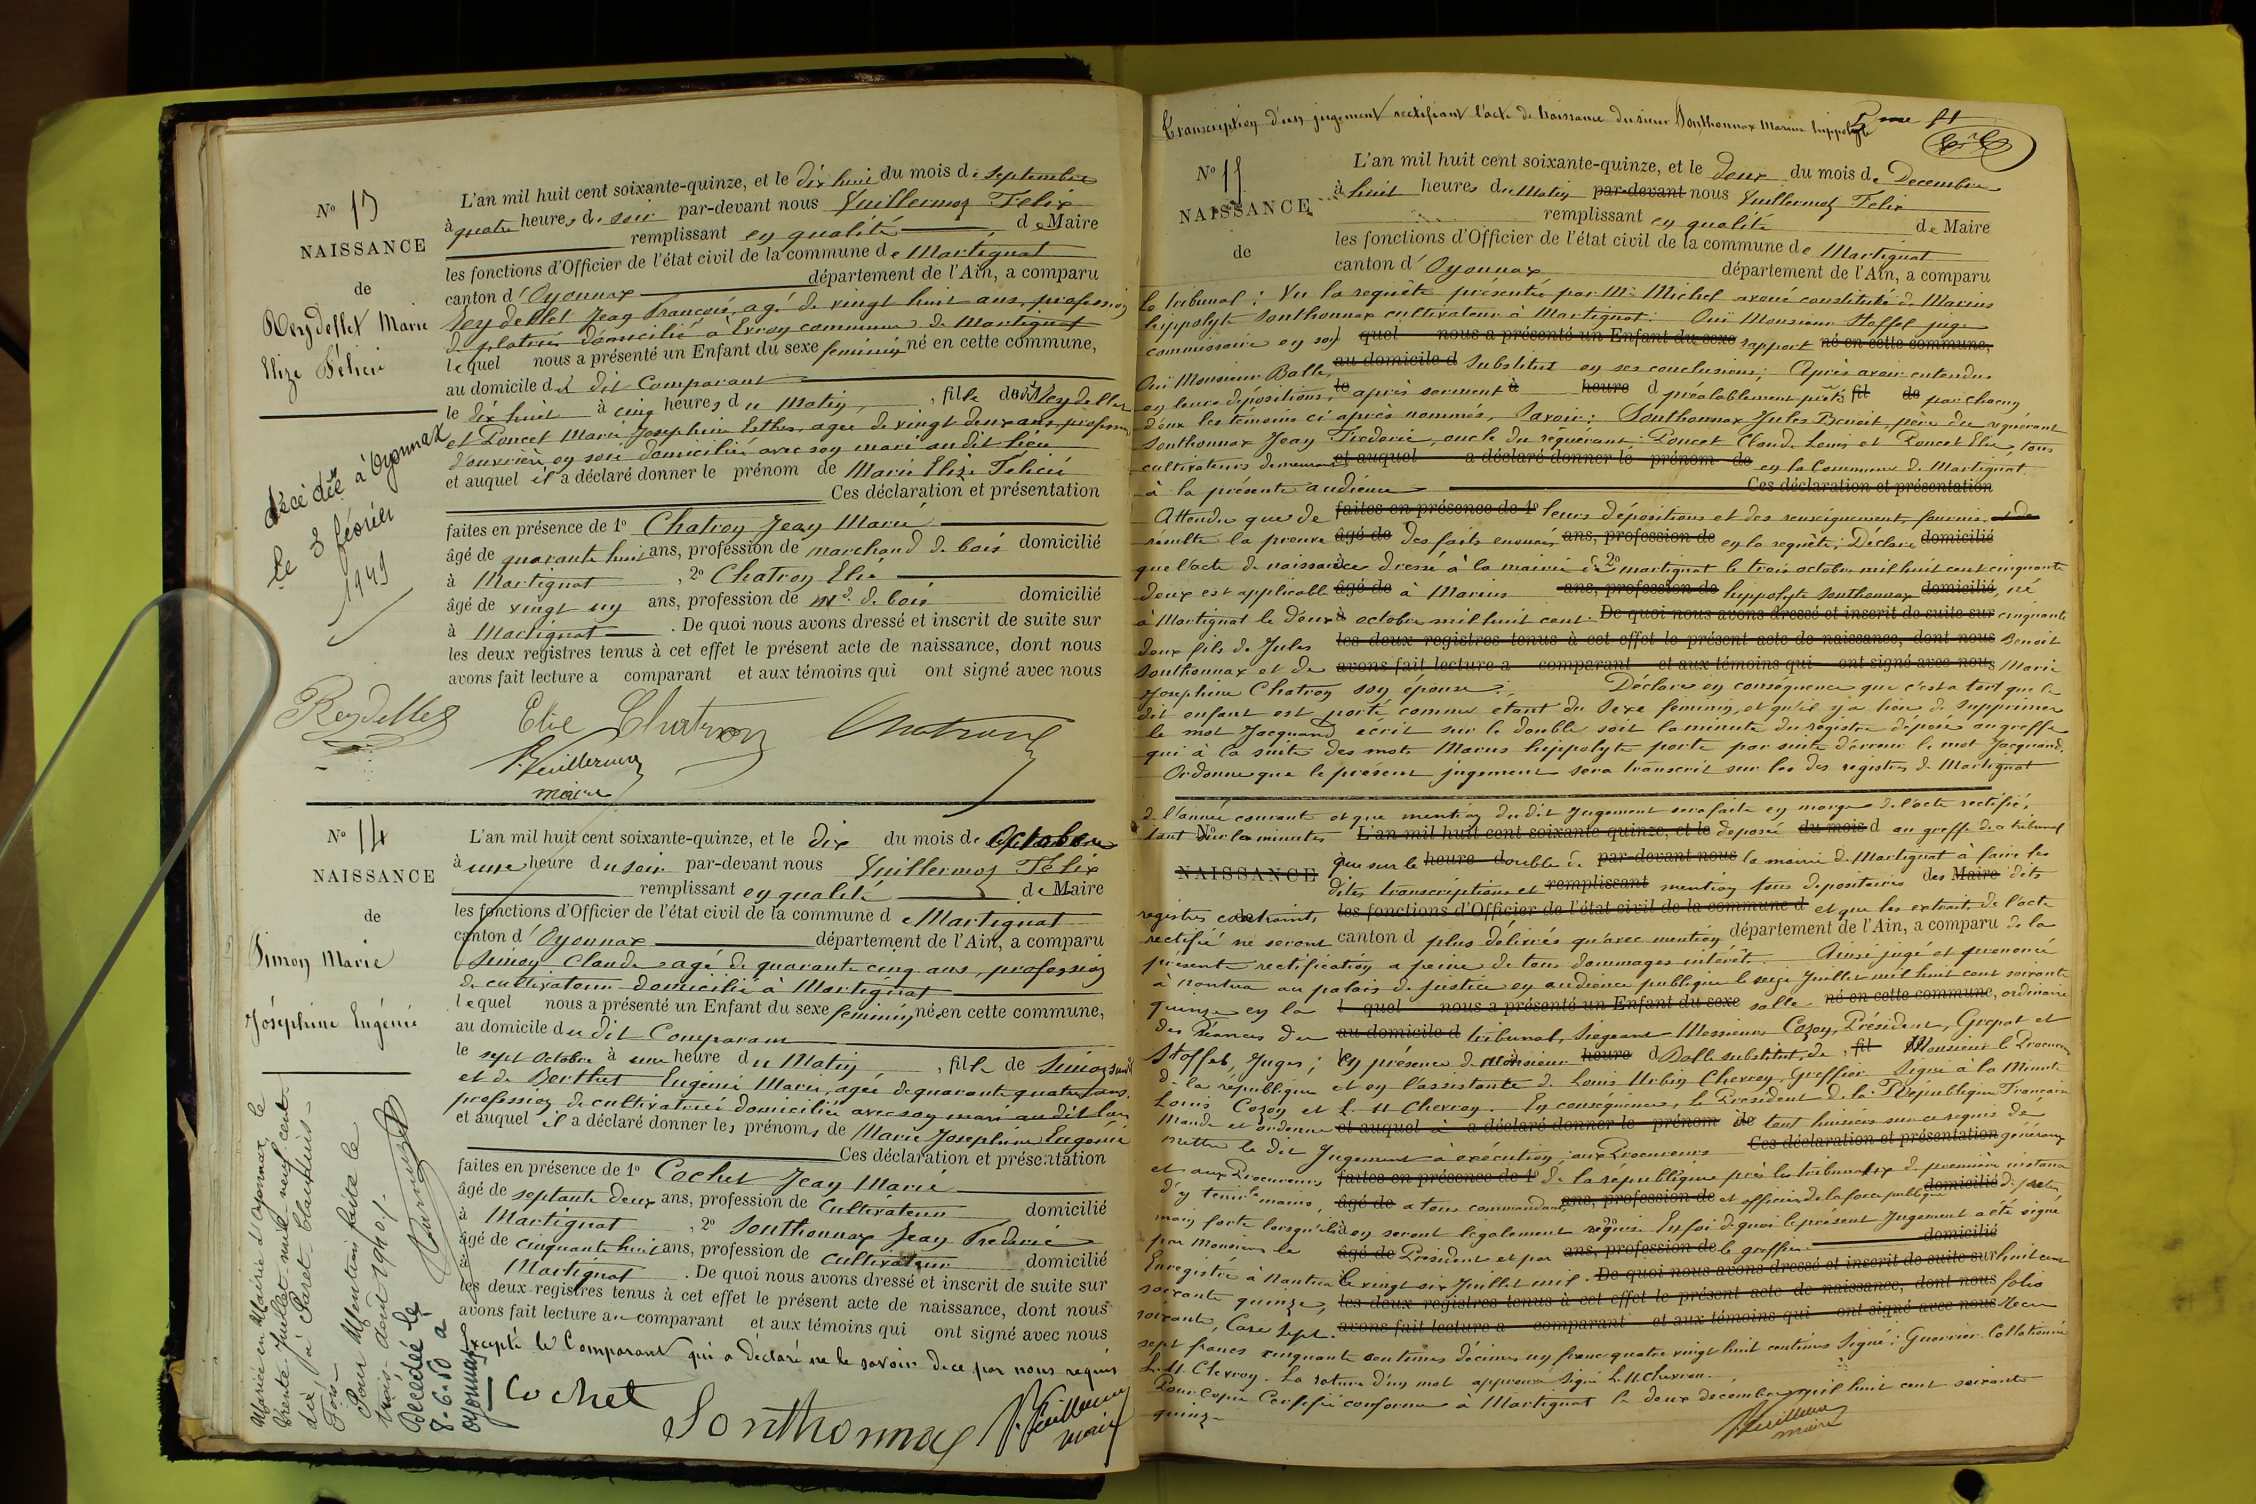 No 13
NAISSANCE
de
Reydellet Marie
Elize Félicie
décédée à Oyonnax
le 3 février
1949
L'an mil huit cent soixante-quinze, et le dix huit du mois de Septembre
à quatre heures du soir par-devant nous Guillermoz Felix
remplissant en qualité de Maire
les fonctions d'Officier de l'état civil de la commune de Martignat
canton d'Oyonnax département de l'Ain, a comparu
Reydellet Jean François, agé de vingt huit ans, profession
de platrier domicilié à Evron commune de Martignat
lequel nous a présenté un Enfant du sexe feminin né en cette commune,
au domicile du dit Comparant
le dix huit à cinq heures du Matin, fille de Reydellet
et Poncet Marie Josephine Esther, agée de vingt deux ans, profession
d'ouvrière en soie domiciliée avec son mari au dit lieu
et auquel il a déclaré donner le prénom de Marie Elize Félicie
Ces déclaration et présentation
faites en présence de 1o Chatron Jean Marie
âgé de quarante huit ans, profession de marchand de bois domicilié
à Martignat, 2o Chatron Elie
âgé de vingt un ans, profession de md de bois domicilié
à Martignat. De quoi nous avons dressé et inscrit de suite sur
les deux registres tenus à cet effet le présent acte de naissance, dont nous
avons fait lecture a comparant et aux témoins qui ont signé avec nous
Reydellet Elie Chatron Chatron
F. Guillermoz
maire
No 14
NAISSANCE
de
Simon Marie
Joséphine Eugénie
Mariée en Mairie d'Oyonnax le
trente Juillet mille neuf cent
dix, à Paret Claudius
Pour Mention faite le
trois août 1910
Décédée le
8-6-50 à
Oyonnax
L'an mil huit cent soixante-quinze, et le dix du mois de Octobre
à une heure du soir par-devant nous Guillermoz Félix
remplissant en qualité de Maire
les fonctions d'Officier de l'état civil de la commune de Martignat
canton d'Oyonnax département de l'Ain, a comparu
Simon Claude agé de quarante cinq ans, profession
de cultivateur domicilié à Martignat
lequel nous a présenté un Enfant du sexe feminin née en cette commune,
au domicile du dit Comparant
le sept Octobre à une heure du Matin, fille de Simon
et de Berthet Eugénie Marie, agée de quarante quatre ans,
profession de cultivatrice domiciliée avec son mari au dit lieu
et auquel il a déclaré donner les prénoms de Marie Joséphine Eugénie
Ces déclaration et présentation
faites en présence de 1o Cochet Jean Marie
âgé de septante deux ans, profession de Cultivateur domicilié
à Martignat, 2o Sonthonnax Jean Frédéric
âgé de cinquante huit ans, profession de cultivateur domicilié
Martignat. De quoi nous avons dressé et inscrit de suite sur
les deux registres tenus à cet effet le présent acte de naissance, dont nous
avons fait lecture au comparant et aux témoins qui ont signé avec nous
Excepté le Comparant qui a déclaré ne le savoir de ce par nous requis
Cochet
Sonthonnax F. Guillermoz
maire
Transcription d'un jugement rectifiant l'acte de Naissance du sieur Sonthonnax Marius hippolyte
No 15
NAISSANCE
de
L'an mil huit cent soixante-quinze, et le deux du mois de Decembre
à huit heures du Matin par-devant nous Guillermoz Felix
remplissant en qualité de Maire
les fonctions d'Officier de l'état civil de la commune de Martignat
canton d'Oyonnax département de l'Ain, a comparu
le tribunal: Vu la requête présentée par Me Michel avoué constitué de Marius
hippolyte Sonthonnax cultivateur à Martignat. Oui Monsieur Stoffel juge
commissaire en son quel nous a présenté un Enfant du sexe rapport né en cette commune,
Oui Monsieur Balle, au domicile d Substitut en ses conclusions; Après avoir entendus
en leurs dépositions, le après serment à heure d préalablement prêté fil de par chacun
d'eux les témoins ci après nommés, Savoir: Sonthonnax Jules Benoit, père du requérant
Sonthonnax Jean Frederic, oncle du réquérant: Poncet Claude Louis et Poncet Elie, tous
cultivateurs demeurant et auquel a déclaré donner le prénom de en la Commune de Martignat
à la présente audience Ces déclaration et présentation
Attendu que de faites en présence de 1o leurs dépositions et des renseignements fournis
resulte la preuve âgé de des faits énoncés ans, profession de en la requête; Déclare domicilié
que l'acte de naissance dressé à la mairie de 2o martignat le trois octobre mil huit cent cinquante
deux est applicable âgé de à Marius ans, profession de hippolyte Sonthonnax domicilié, né
à Martignat le deux octobre mil huit cent De quoi nous avons dressé et inscrit de suite sur cinquante
deux fils de Jules les deux registres tenus à cet effet le présent acte de naissance, dont nous Benoit
Sonthonnax et de avons fait lecture a comparant et aux témoins qui ont signé avec nous Marie
Josephine Chatron son épouse; Déclare en conséquence que c'est a tort que le
dit enfant est porté comme étant du Sexe feminin, et qu'il y a lieu de supprimer
le mot Jacquand écrit sur le double soit la minute du registre déposée au greffe
qui à la suite des mots Marius hippolyte porte par suite d'erreur le mot Jacquand.
Ordonne que le présent jugement sera transcrit sur les des registres de Martignat
de l'année courante et que mention du dit Jugement sera faite en marge de l'acte rectifié,
tant No sur la minute L'an mil huit cent soixante-quinze, et le deposée du mois d au greffe de ce tribunal
NAISSANCE que sur le heure double d par-devant nous la mairie de Martignat à faire les
dites transcriptions et remplissant mention tous depositaires des Maire dits
registres contraints les fonctions d'Officier de l'état civil de la commune d et que les extraits de l'acte
rectifié ne seront canton d plus délivrés qu'avec mention département de l'Ain, a comparu de la
présente rectification a peine de tous dommages intérêt. Ainsi jugé et prononcé
à Nantua au palais de justice en audience publique le seize Juillet mil huit cent soixante
quinze en la l quel nous a présenté un Enfant du sexe salle né en cette commune, ordinaire
des Séances du au domicile d tribunal, Siegeant Messieurs Cozon, Président, Grepat et
Stoffel, Juges; En présence de Monsieur heure d Balle substitut, de fil Monsieur le Procureur
de la république et en l'assistance de Louis Urbin Chevron, Greffier Signé à la Minute
Louis Cozon et L. U Chevron. En conséquence, le President de la République Française
Mande et ordonne et auquel a déclaré donner le prénom de tout huissier sur ce requis de
mettre le dit Jugement à exécution, aux Procureurs Ces déclaration et présentation généraux
et aux Procureurs faites en présence de 1o de la république près les tribunaux de première instance
d'y tenir la main, âgé de a tous commandants ans, profession de et officiers de la force publique domicilié de preter
main forte lorsqu'ils en seront légalement requis. En foi de quoi le présent Jugement a été signé
par Monsieur le âgé de Président et par ans, profession de le greffier domicilié
Enregistré à Nantua le vingt six Juillet mil De quoi nous avons dressé et inscrit de suite sur huit cent
soixante quinze, les deux registres tenus à cet effet le présent acte de naissance, dont nous folio
soixante, Case Sept. avons fait lecture a comparant et aux témoins qui ont signé avec nous Recu
sept francs cinquante centimes décimes un franc quatre vingt huit centimes Signé: Guerrier. Collationné
L. U. Chevron. La rature d'un mot approuvée Signé L. U Chevron.
Pour Copie Certifiée conforme à Martignat le deux decembre mil huit cent soixante
quinze
F. Guillermoz
maire